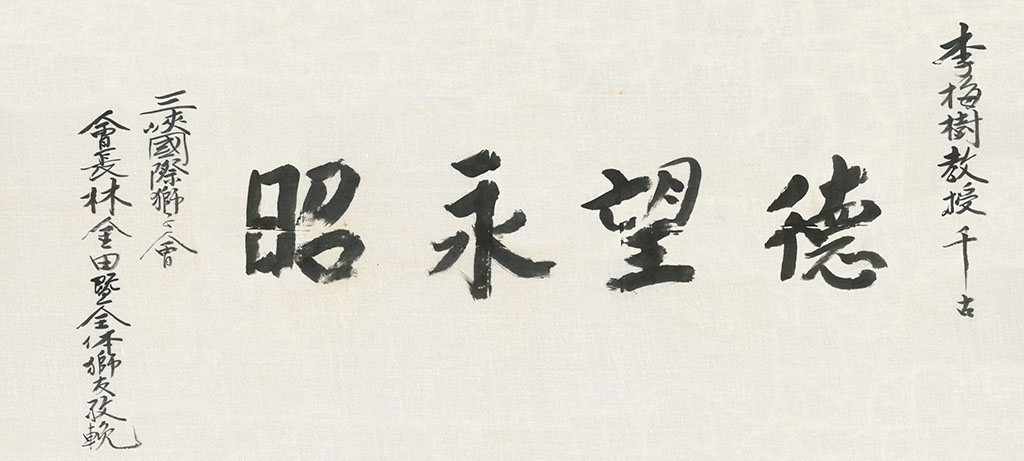 李梅樹教授千古
德望永昭
三峽國際獅々會
會長林金田暨全体獅友敬輓